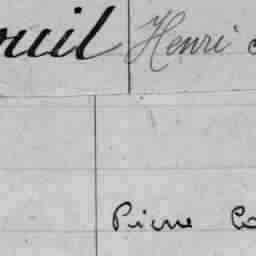 ouil Henri
Pierre Co